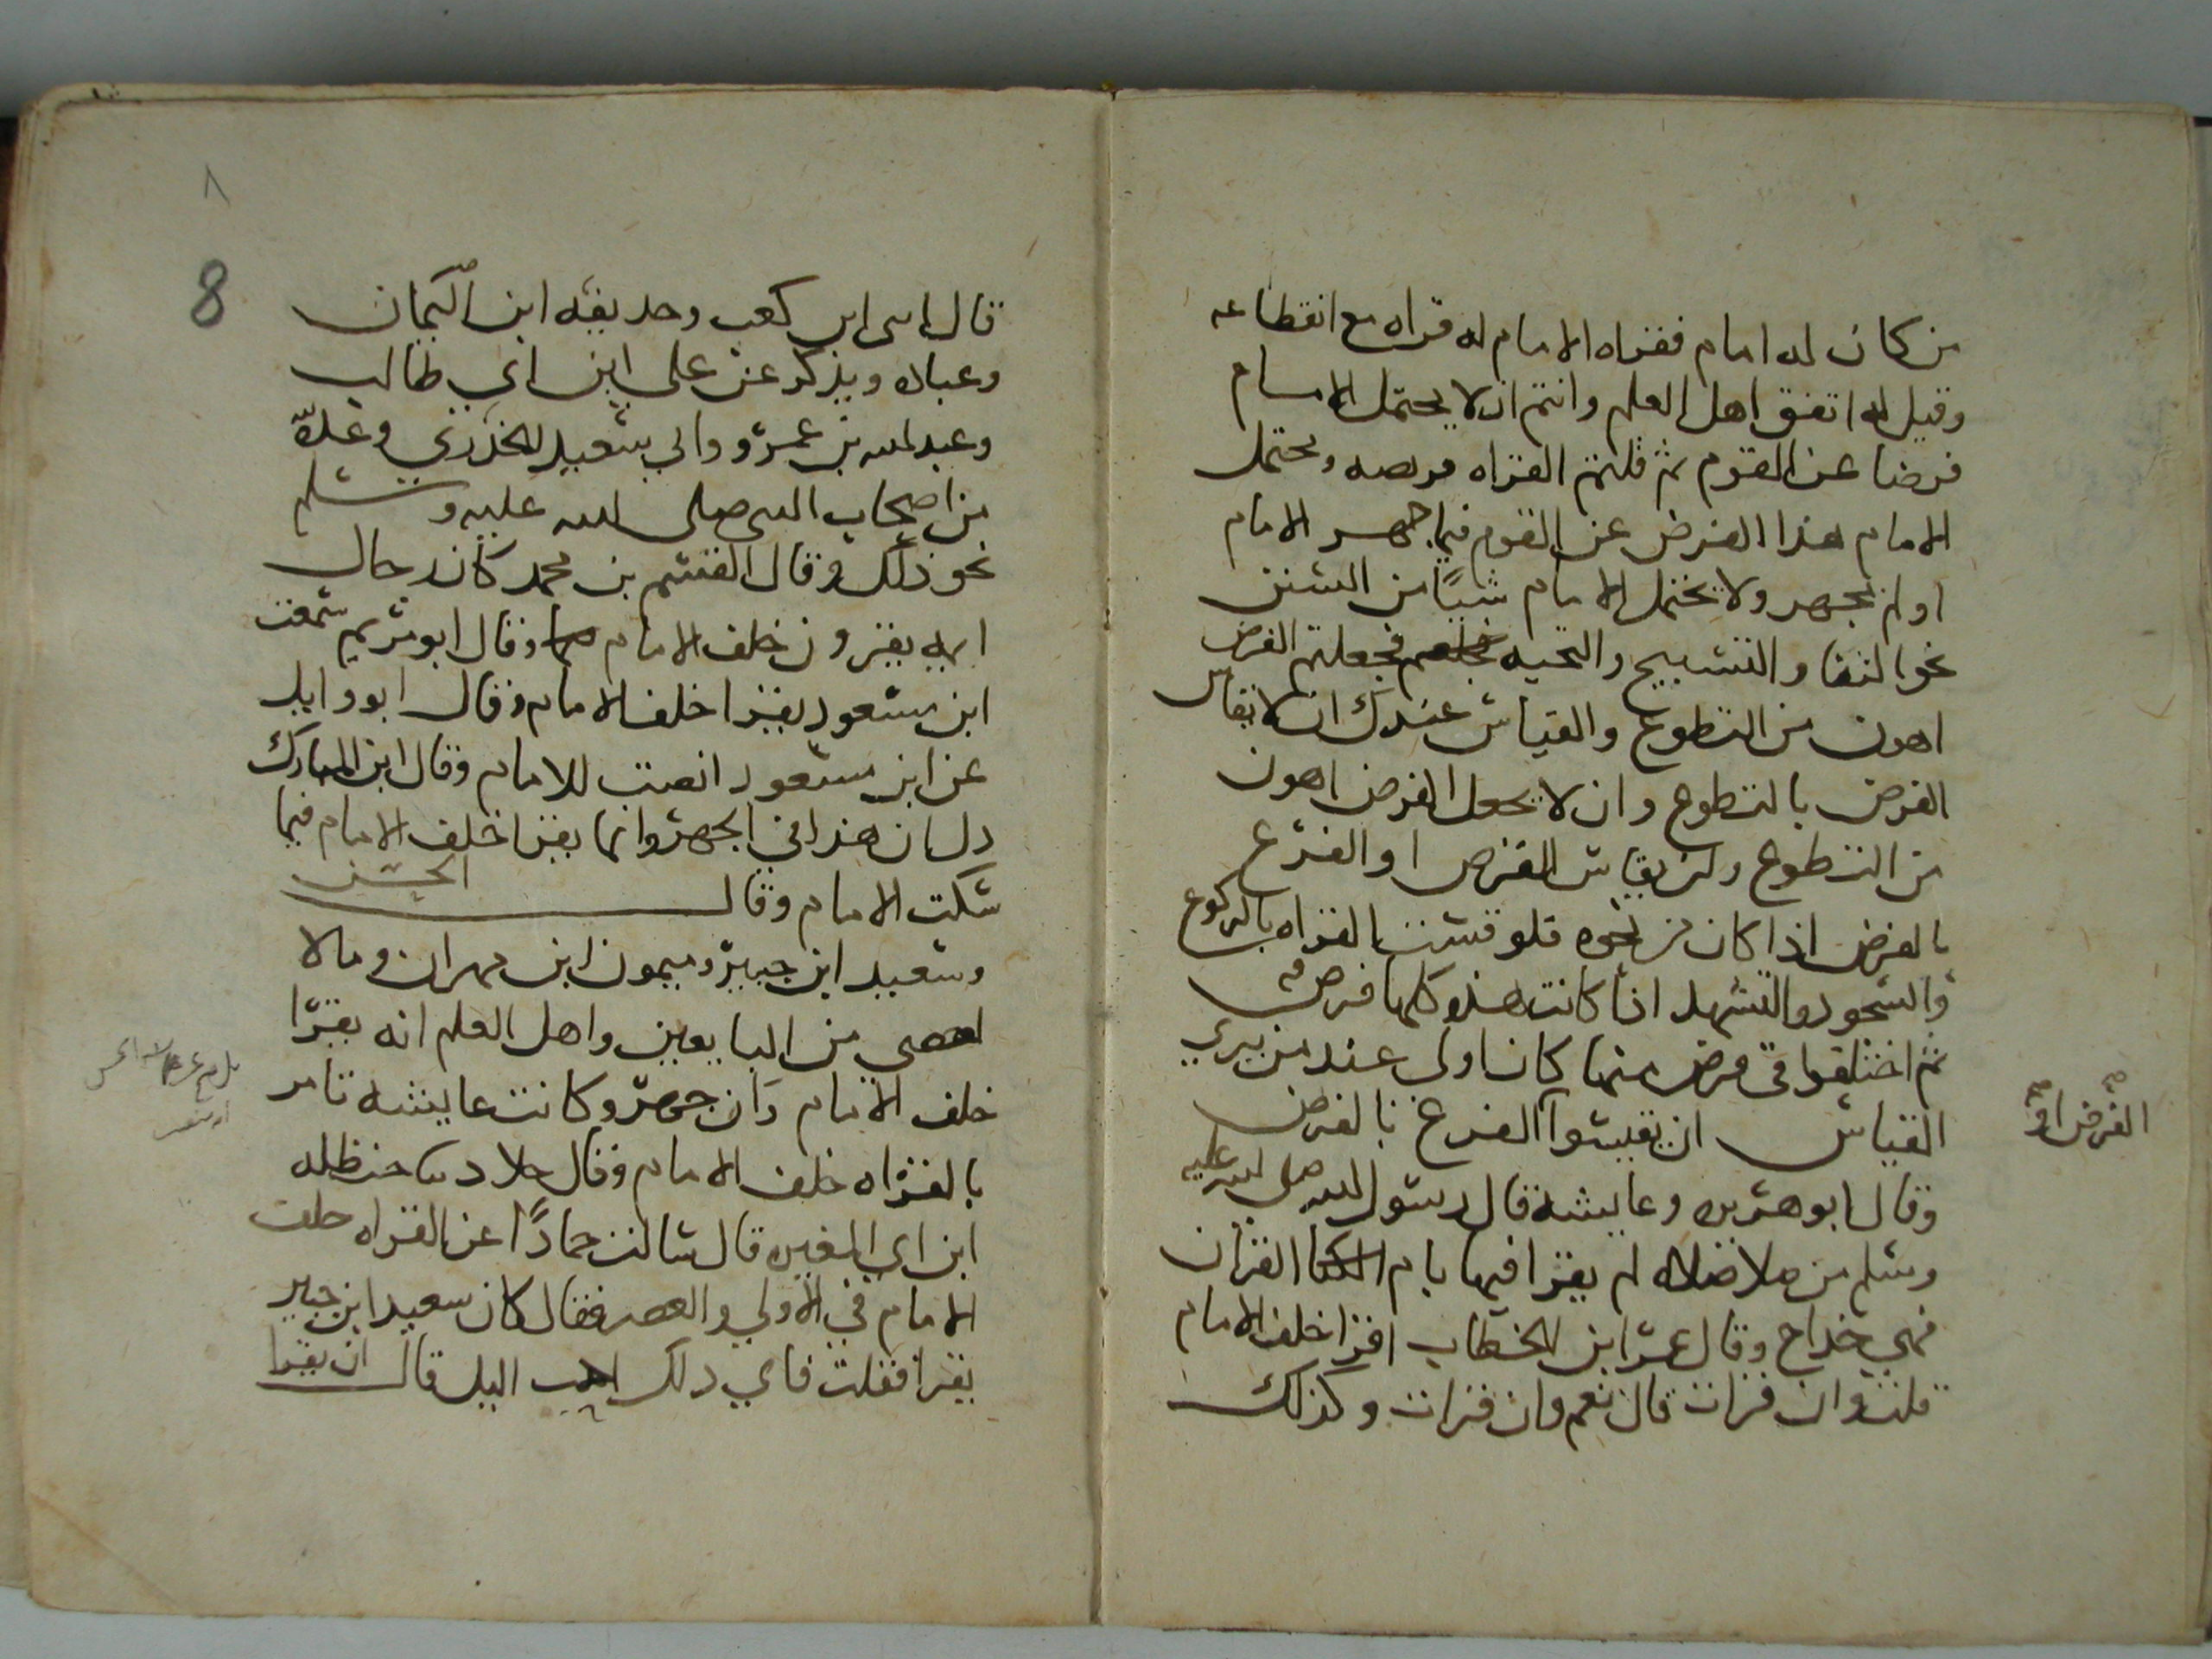 من كان له امام فقراه الامام له قراه مع انقطاعه
وقيل له اتفق اهل العلم وانتم ان لا يحتمل الامام
فرضا عن القوم ثم قلتم القراه فريضه ويحتمل
الامام هذا الفرض عن القوم فيما جهر الامام
او لم يجهر ولا يحتمل الامام شيئا من السنن
نحو الثنا والتسبيح والتحيه فجعلتم الفرض
اهون من التطوع والقياس عندك ان لا يقاس
الفرض بالتطوع وان لا يجعل الفرض اهون
من التطوع وان يقاس الفرض او الفرع
بالفرض اذا كان من نحوه فلو قست القراه بالركوع
والسجود والتشهد اذا كانت هذه كلها فرض
ثم اختلفوا في فرض منها كان اولى عند من يرى
القياس ان يقيسوا الفرع بالفرض
الفرض او
وقال ابو هريره وعايشه قال رسول الله صلى الله عليه
وسلم من صلا صلاه لم يقرا فيها بام القران
فهي خداج وقال عمر ابن الخطاب اقرا خلف الامام
قلت وان قرات قال نعم وان قرات وكذلك
٨
8
قال ابي ابن كعب وحذيفه ابن اليمان
وعباده ويذكر عن علي ابن ابي طالب
وعبد الله بن عمرو وابي سعيد الخدري وعدة
من اصحاب النبي صلى الله عليه وسلم
نحو ذلك وقال القسم بن محمد كان رجال
ايمه يقرون خلف الامام وقال ابو مريم سمعت
ابن مسعود يقرا خلف الامام وقال ابو وايل
عن ابن مسعود انصت للامام وقال ابن المبارك
دل ان هذا في الجهر وانما يقرا خلف الامام فيما
سكت الامام وقال الحسن
وسعيد ابن جبير وميمون ابن مهران وما لا
احصي من التابعين واهل العلم انه يقرا
خلف الامام وان جهر وكانت عايشه تامر
بالقراه خلف الامام وقال خلاد حنظله
ابن ابي المغيره قال سالت حمادا عن القراه خلف
الامام في الاولى والعصر فقال كان سعيد ابن جبير
يقرا فقلت فاي ذلك احب اليك قال ان يقرا